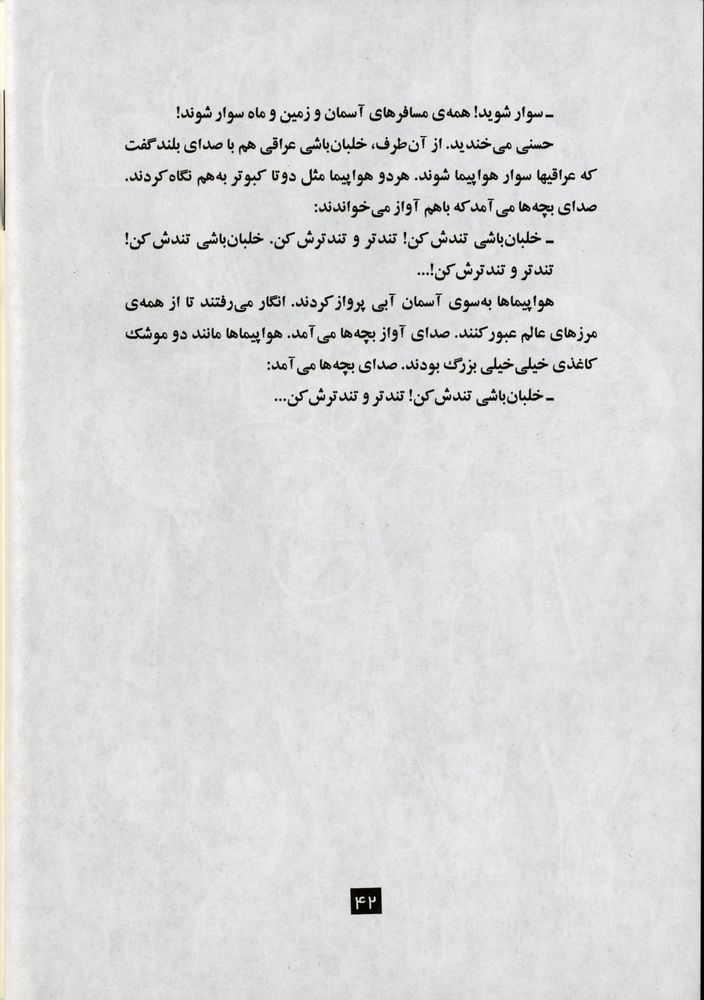 ـ سوار شوید! همه‌ی مسافرهای آسمان و زمین و ماه سوار شوند!
حسنی می‌خندید. از آن‌طرف، خلبان‌باشی عراقی هم با صدای بلند گفت
که عراقیها سوار هواپیما شوند. هردو هواپیما مثل دوتا کبوتر به‌هم نگاه کردند.
صدای بچه‌ها می‌آمد که باهم آواز می‌خواندند:
ـ خلبان‌باشی تندش کن! تندتر و تندترش کن. خلبان‌باشی تندش کن!
تندتر و تندترش کن!...
هواپیماها به‌سوی آسمان آبی پرواز کردند. انگار می‌رفتند تا از همه‌ی
مرزهای عالم عبور کنند. صدای آواز بچه‌ها می‌آمد. هواپیماها مانند دو موشک
کاغذی خیلی‌خیلی بزرگ بودند. صدای بچه‌ها می‌آمد:
ـ خلبان‌باشی تندش کن! تندتر و تندترش کن...
۴۲